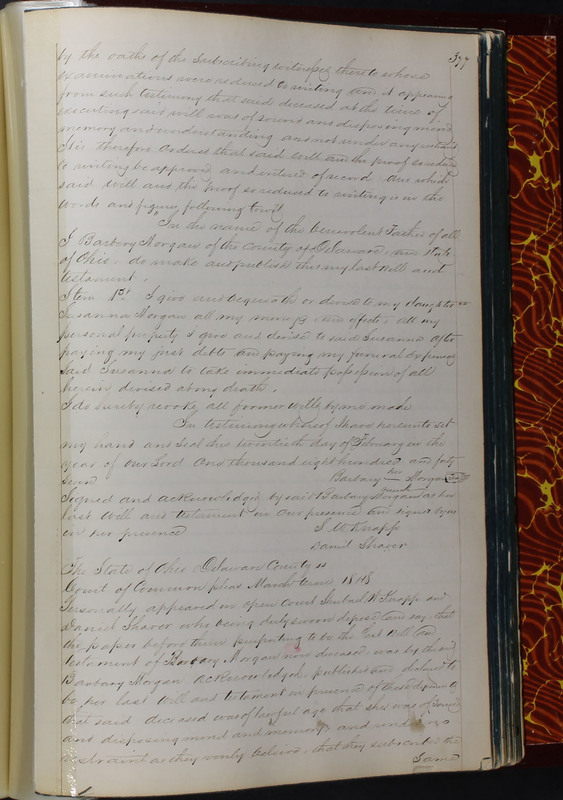 377
by the oaths of the Subscribing witnesses thereto whose
examinations were reduced to writing and it appearing
from such testimony that said deceased at the time of
executing said will was of sound and disposing mind
memory and understanding and not under any restraint
It is therefore Ordered that said Will and the proof so reduced
to writing be approved and entered of record and which
said Will and the proof so reduced to writing is in the
words and figures following towit
"In the name of the benevolent Father of all
I Barbary Morgan of the County of Delaware and State
of Ohio do make and publish this my last will and
testament.
Item 1st I give and bequeath or devise to my daughter
Susanna Morgan all my moneys and effects, all my
personal property I give and devise to said Susanna after
paying my just debts and paying my funeral expenses
Said Susanna to take immediate possession of all
herein devised at my death.
I do hereby revoke all former wills by me made
In testimony whereof I have hereunto set
my hand and Seal this twentieth day of February in the
year of our Lord One thousand eight hundred and forty
seven
Barbary her mark Morgan
Signed and acknowledged by said Barbary Morgan as her
last Will and testament in our presence and signed by us
in her presence
S. W. Knapp
Daniel Shaver
The State of Ohio Delaware County ss
Court of Common pleas March term 1848
Personally appeared in open Court W Knapp and
Daniel Shaver who being duly sworn depose and say that
the paper before them purporting to be the last Will and
testament of Barbary Morgan now deceased was by the said
Barbary Morgan acknowledged published and declared to
be her last Will and testament in presence of these deponents
that said deceased was of lawful age that she was of sound
and disposing mind and memory and under no
restraint as they verily believe, that they subscribed the
Same